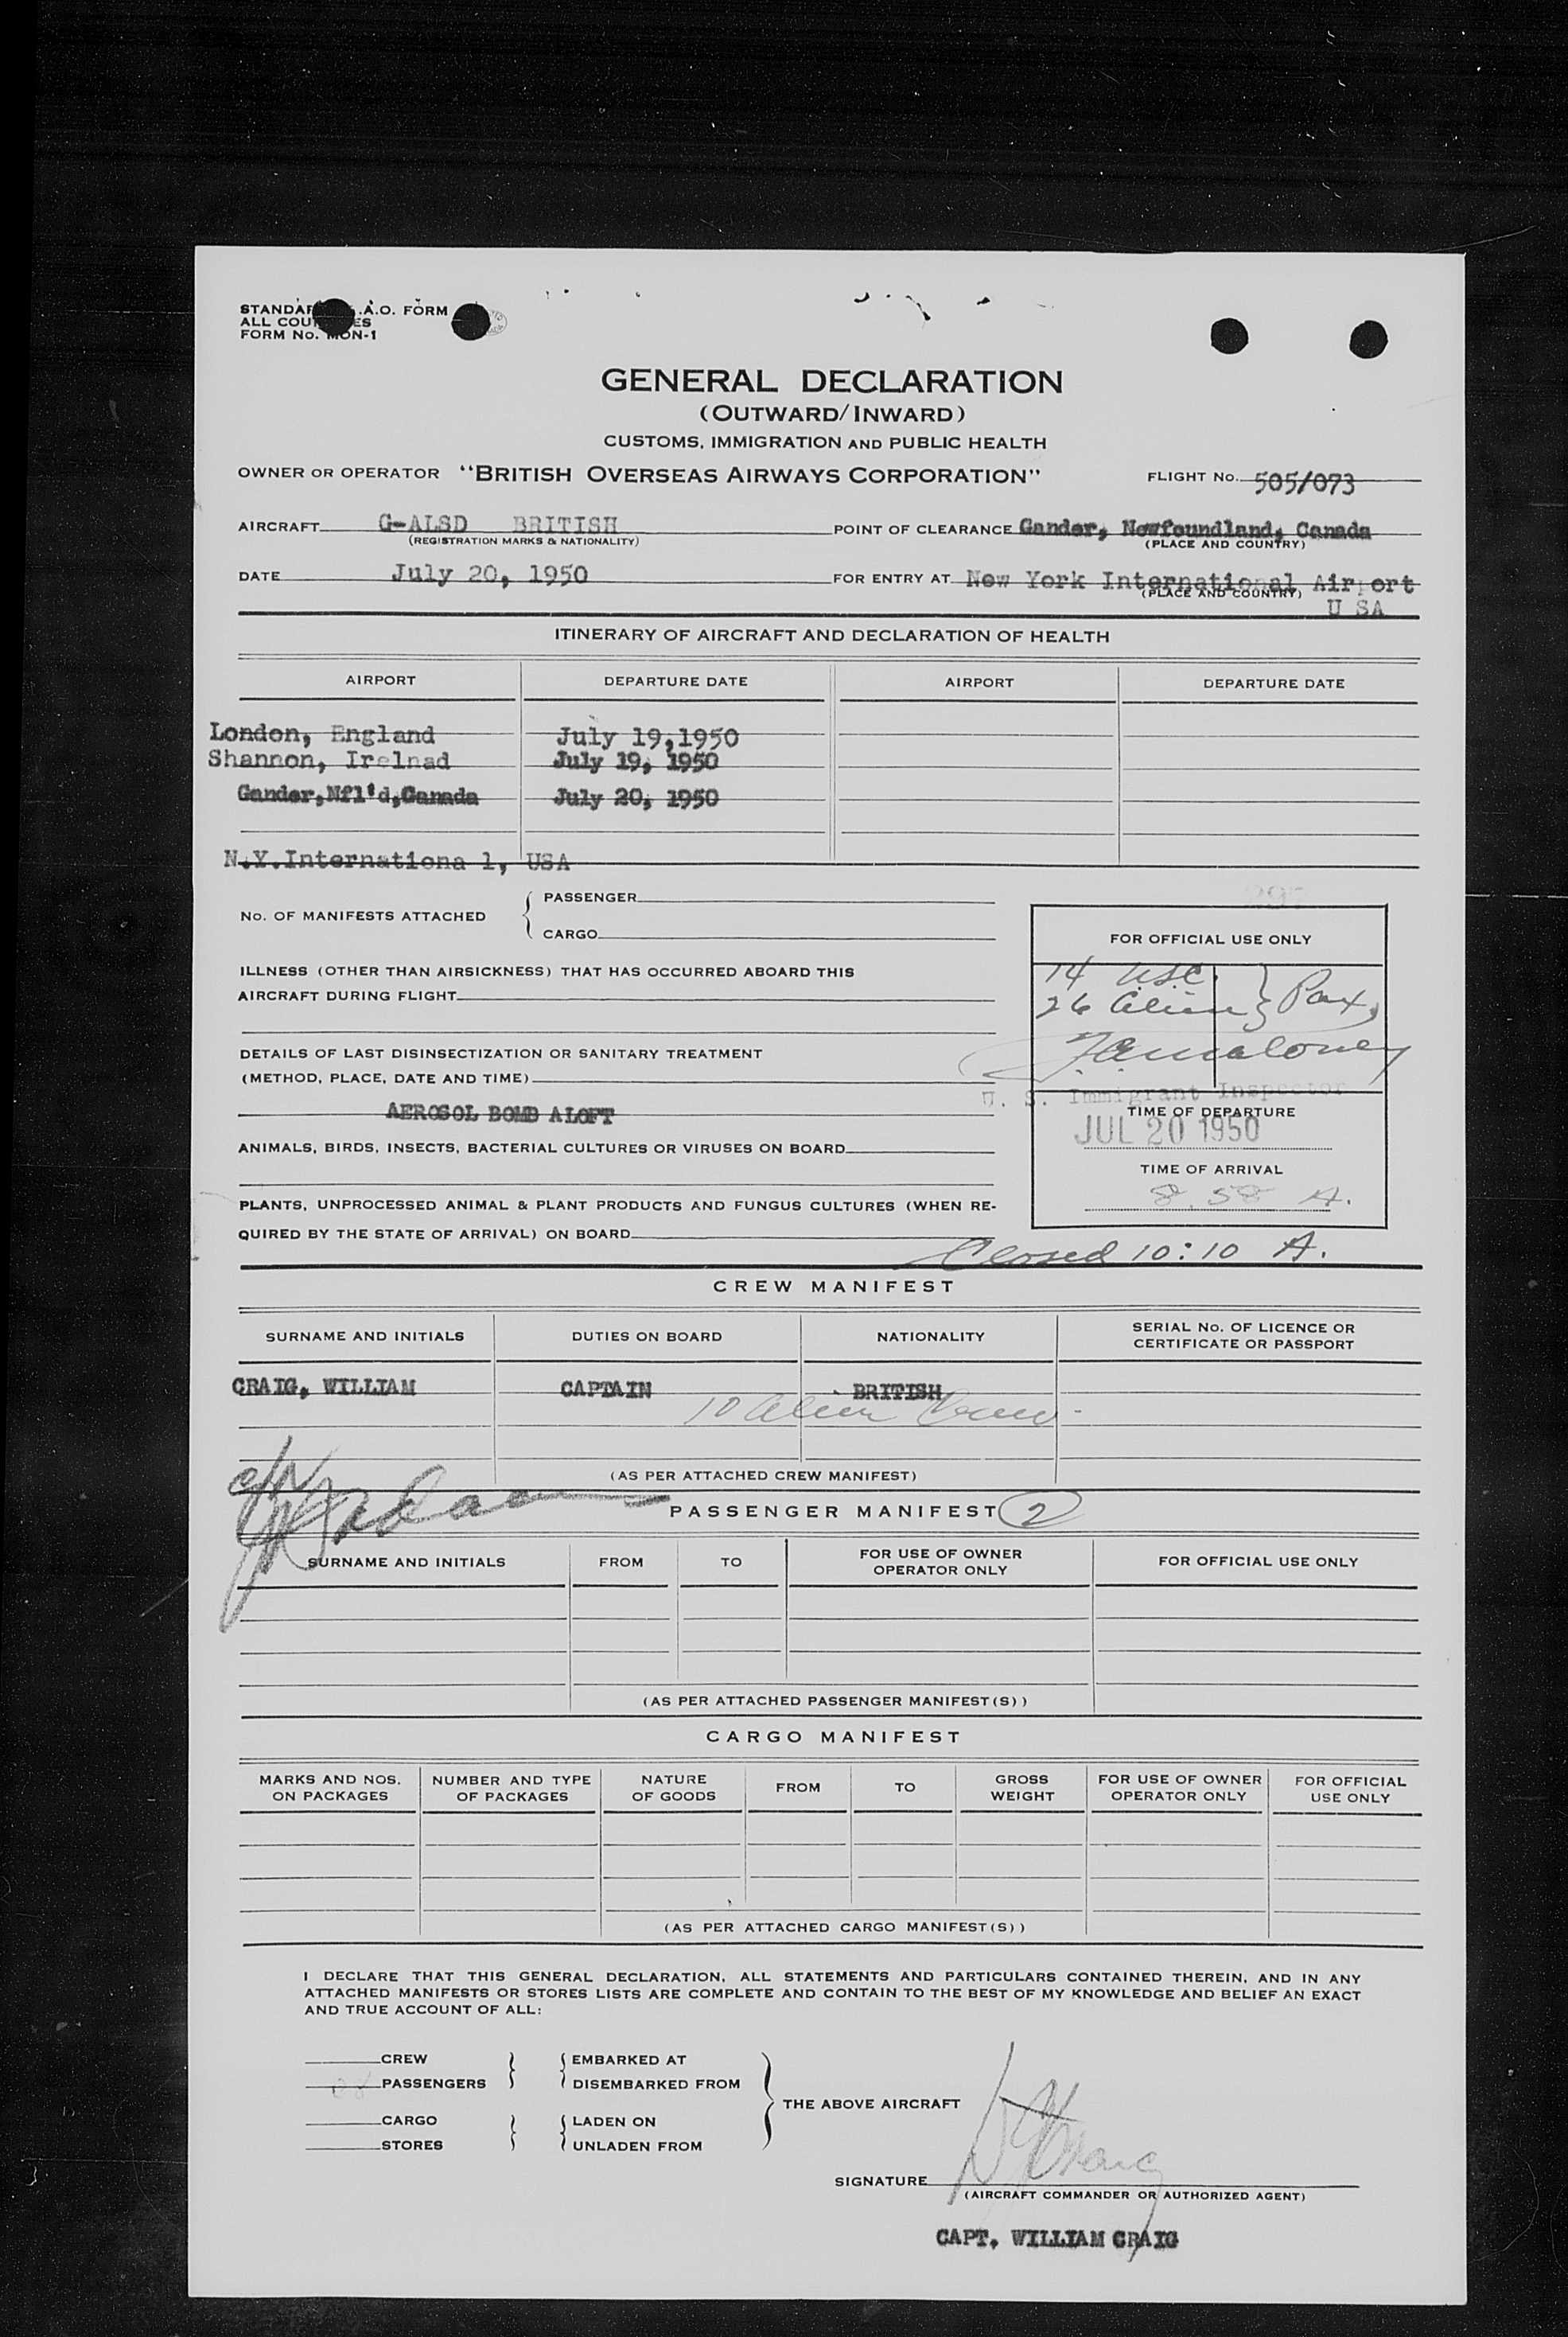 STANDAR .A.O. FORM
ALL COU ES
FORM No. MON-1
GENERAL DECLARATION
(OUTWARD/INWARD)
CUSTOMS, IMMIGRATION AND PUBLIC HEALTH
OWNER OR OPERATOR "BRITISH OVERSEAS AIRWAYS CORPORATION" FLIGHT No. 505/073
AIRCRAFT G-ALSD BRITISH POINT OF CLEARANCE Gander, Newfoundland, Canada
(REGISTRATION MARKS & NATIONALITY) (PLACE AND COUNTRY)
DATE July 20, 1950 FOR ENTRY AT New York International Air ort
(PLACE AND COUNTRY)
U SA
ITINERARY OF AIRCRAFT AND DECLARATION OF HEALTH
AIRPORT DEPARTURE DATE AIRPORT DEPARTURE DATE
London, England July 19,1950
Shannon, Irelnad July 19, 1950
Gander,Nfl'd,Canada July 20, 1950
N.Y.Internationa l, USA
No. OF MANIFESTS ATTACHED
PASSENGER
CARGO
ILLNESS (OTHER THAN AIRSICKNESS) THAT HAS OCCURRED ABOARD THIS
AIRCRAFT DURING FLIGHT
DETAILS OF LAST DISINSECTIZATION OR SANITARY TREATMENT
(METHOD, PLACE, DATE AND TIME)
AEROSOL BOMB ALOFT
ANIMALS, BIRDS, INSECTS, BACTERIAL CULTURES OR VIRUSES ON BOARD
PLANTS, UNPROCESSED ANIMAL & PLANT PRODUCTS AND FUNGUS CULTURES (WHEN RE-
QUIRED BY THE STATE OF ARRIVAL) ON BOARD
FOR OFFICIAL USE ONLY
14 USC.
26 Alien } Pax,
U. S. Immigrant Inspector
TIME OF DEPARTURE
JUL 20 1950
TIME OF ARRIVAL
8.58 A.
Closed 10:10 A.
CREW MANIFEST
SURNAME AND INITIALS DUTIES ON BOARD NATIONALITY SERIAL No. OF LICENCE OR
CERTIFICATE OR PASSPORT
CRAIG, WILLIAM CAPTAIN BRITISH
10 Alien Crew -
(AS PER ATTACHED CREW MANIFEST)
PASSENGER MANIFEST 2
SURNAME AND INITIALS FROM TO FOR USE OF OWNER
OPERATOR ONLY FOR OFFICIAL USE ONLY
(AS PER ATTACHED PASSENGER MANIFEST(S))
CARGO MANIFEST
MARKS AND NOS. NUMBER AND TYPE NATURE FROM TO GROSS FOR USE OF OWNER FOR OFFICIAL
ON PACKAGES OF PACKAGES OF GOODS WEIGHT OPERATOR ONLY USE ONLY
(AS PER ATTACHED CARGO MANIFEST(S))
I DECLARE THAT THIS GENERAL DECLARATION, ALL STATEMENTS AND PARTICULARS CONTAINED THEREIN, AND IN ANY
ATTACHED MANIFESTS OR STORES LISTS ARE COMPLETE AND CONTAIN TO THE BEST OF MY KNOWLEDGE AND BELIEF AN EXACT
AND TRUE ACCOUNT OF ALL:
CREW EMBARKED AT
PASSENGERS DISEMBARKED FROM
THE ABOVE AIRCRAFT
CARGO LADEN ON
STORES UNLADEN FROM
SIGNATURE
(AIRCRAFT COMMANDER OR AUTHORIZED AGENT)
CAPT. WILLIAM CRAIG